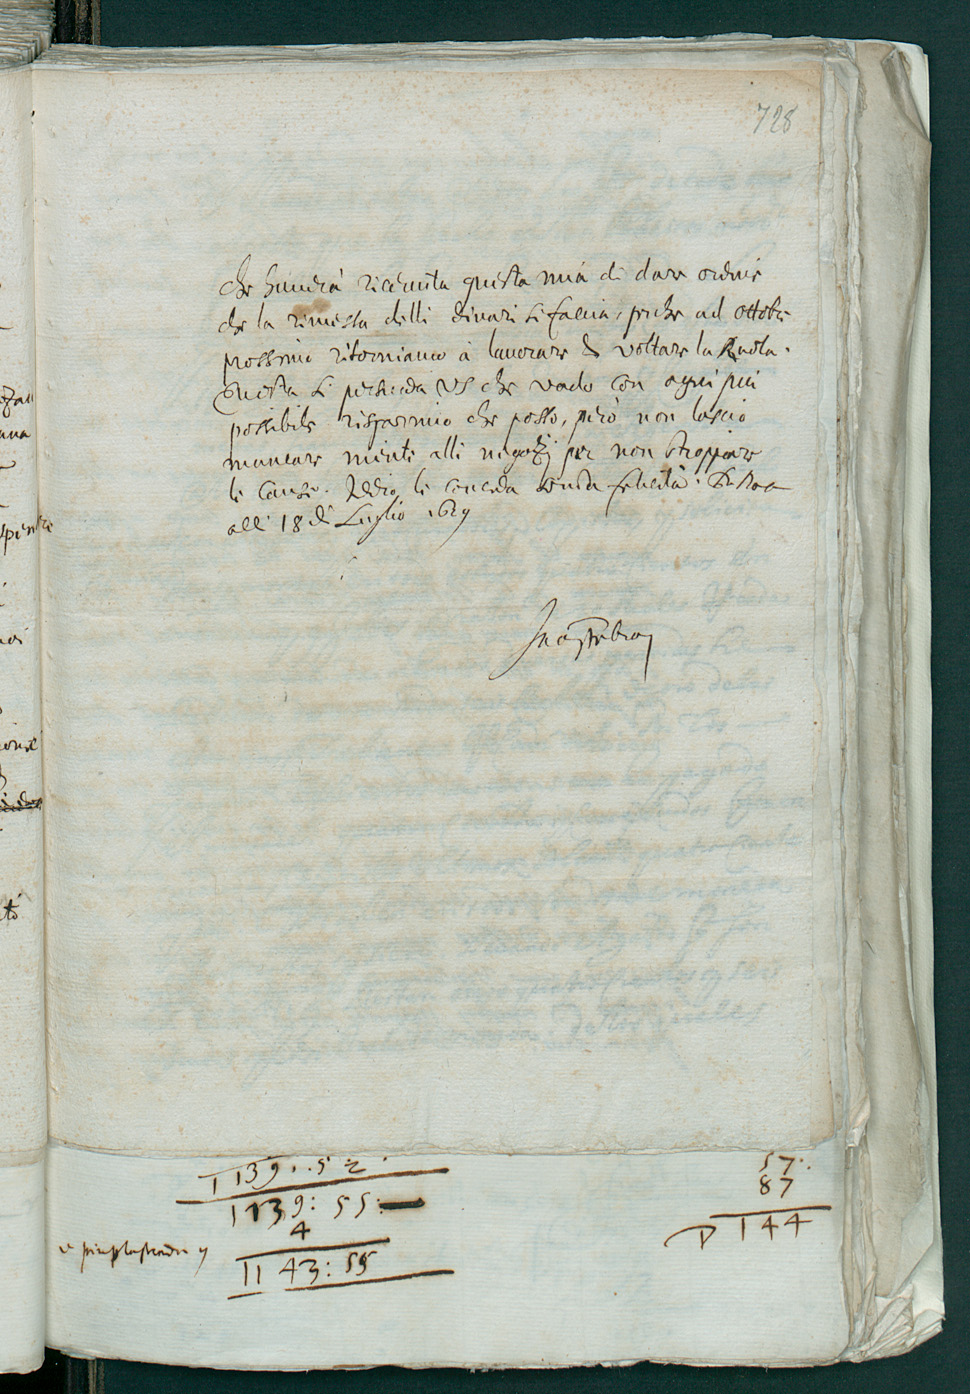 728
che haverà ricevuta questa mia di dare ordine
che la rimessa delli dinari si faccia, perche ad ottobre
prossimo ritorniamo à lavorare & voltare la Ruota.
Questa si persuada VS che vado con ogni più
possibile risparmio che posso, però non lascio
mancare niente alli negotij per non stroppiare
le cause. Iddio le conceda ogni felicità. Di Roma
alli 18 di Luglio 1629
1139..52.
1139: 55:
4
1143: 55
57.
87
144